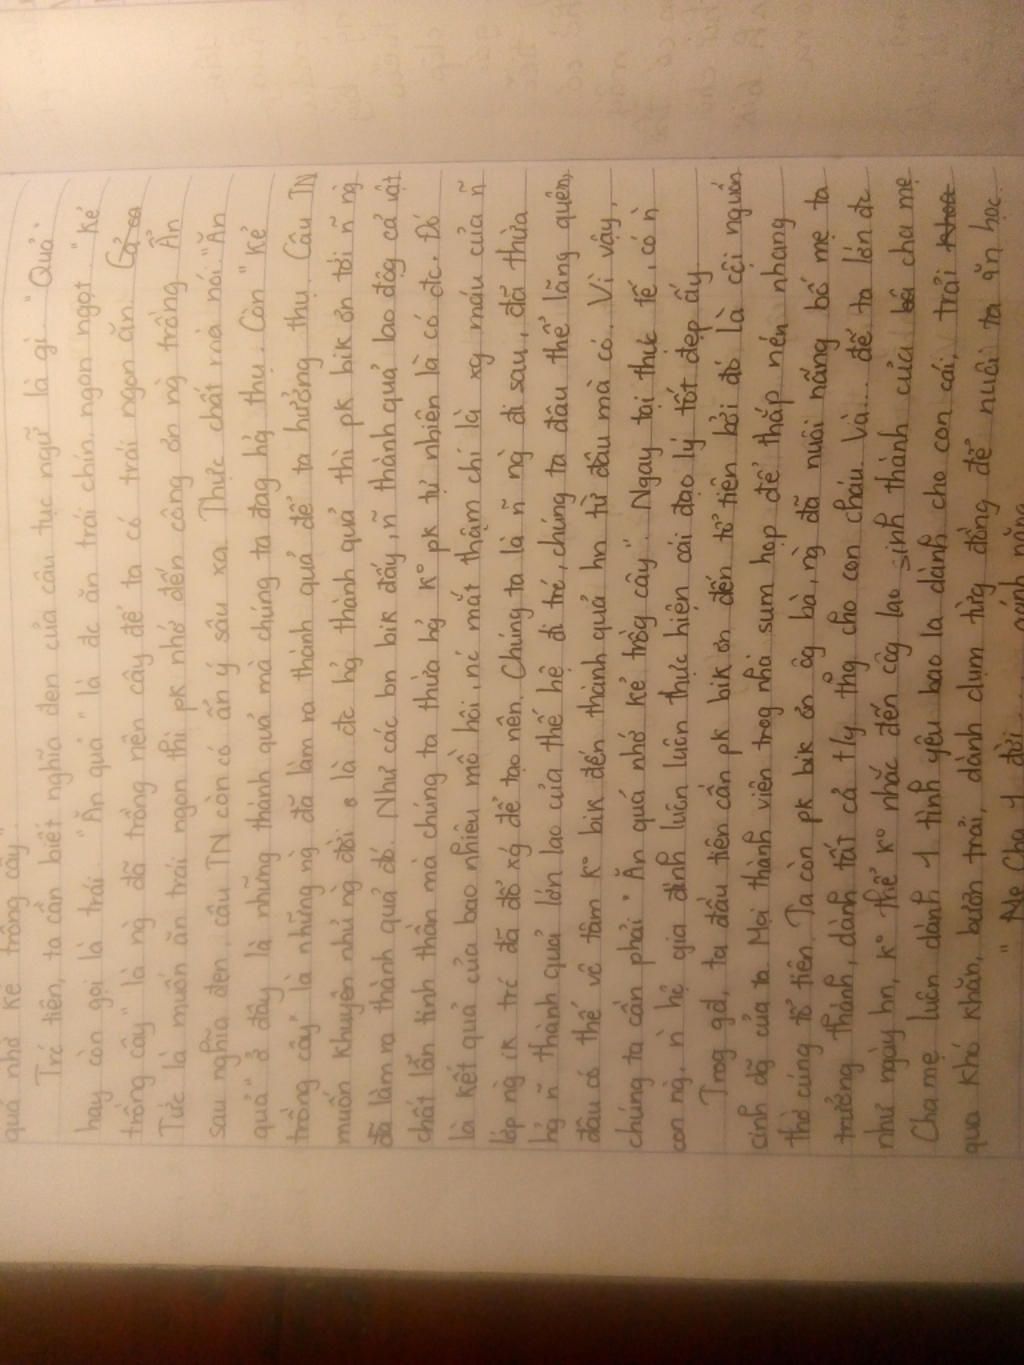 quả nhớ kẻ trồng cây"
Trc tiên, ta cần biết nghĩa đen của câu tục ngữ là gì. "Quả"
hay còn gọi là trái. "Ăn quả" là đc ăn trái chín ngon ngọt. "Kẻ
trồng cây" là ng đã trồng nên cây để ta có trái ngon ăn. Cả
Tức là muốn ăn trái ngon thì pk nhớ đến công ơn ng trồng. Ẩn
sau nghĩa đen, câu TN còn có ẩn ý sâu xa. Thực chất mà nói "Ăn
quả" ở đây là những thành quả mà chúng ta đag hg thụ. Còn "Kẻ
trồng cây" là những ng đã làm ra thành quả để ta hưởng thụ. Câu TN
muốn khuyên nhủ ng đời là đc hg thành quả thì pk bik ơn tới ñ ng
đã làm ra thành quả đó. Như các bn bik đấy, ñ thành quả lao độg cả vật
chất lẫn tinh thần mà chúng ta thừa hg kº pk tự nhiên là có đc. Đó
là kết quả của bao nhiêu mồ hôi, nc mắt thậm chí là xg máu của ñ
lớp ng ik trc đã đổ xg để tạo nên. Chúng ta là ñ ng đi sau, đã thừa
hg ñ thành quả lớn lao của thế hệ đi trc, chúng ta đâu thể lãng quên,
đâu có thể vô tâm kº bik đến thành quả hn từ đâu mà có. Vì vậy,
chúng ta cần phải "Ăn quả nhớ kẻ trồg cây". Ngay tại thực tế, có ǹ
con ng, ǹ hộ gia đình luôn luôn thực hiện cái đạo lý tốt đẹp ấy.
Trog gđ, ta đầu tiên cần pk bik ơn đến tổ tiên bởi đó là cội nguồn
sinh dg của ta. Mọi thành viên trog nhà sum họp để thắp nén nhang
thờ cúng tổ tiên. Ta còn pk bik ơn ôg bà, ng đã nuôi nấng bố mẹ ta
trưởng thành, dành tất cả t/y thg cho con cháu. Và... để ta lớn đc
như ngày hn, kº thể kº nhắc đến côg lao sinh thành của cha mẹ
Cha mẹ luôn dành 1 tình yêu bao la dành cho con cái, trải khoả
qua khó khăn, bươn trải, dành dụm từg đồng để nuôi ta ăn học.
"Mẹ Cha 1 đời gánh nặng